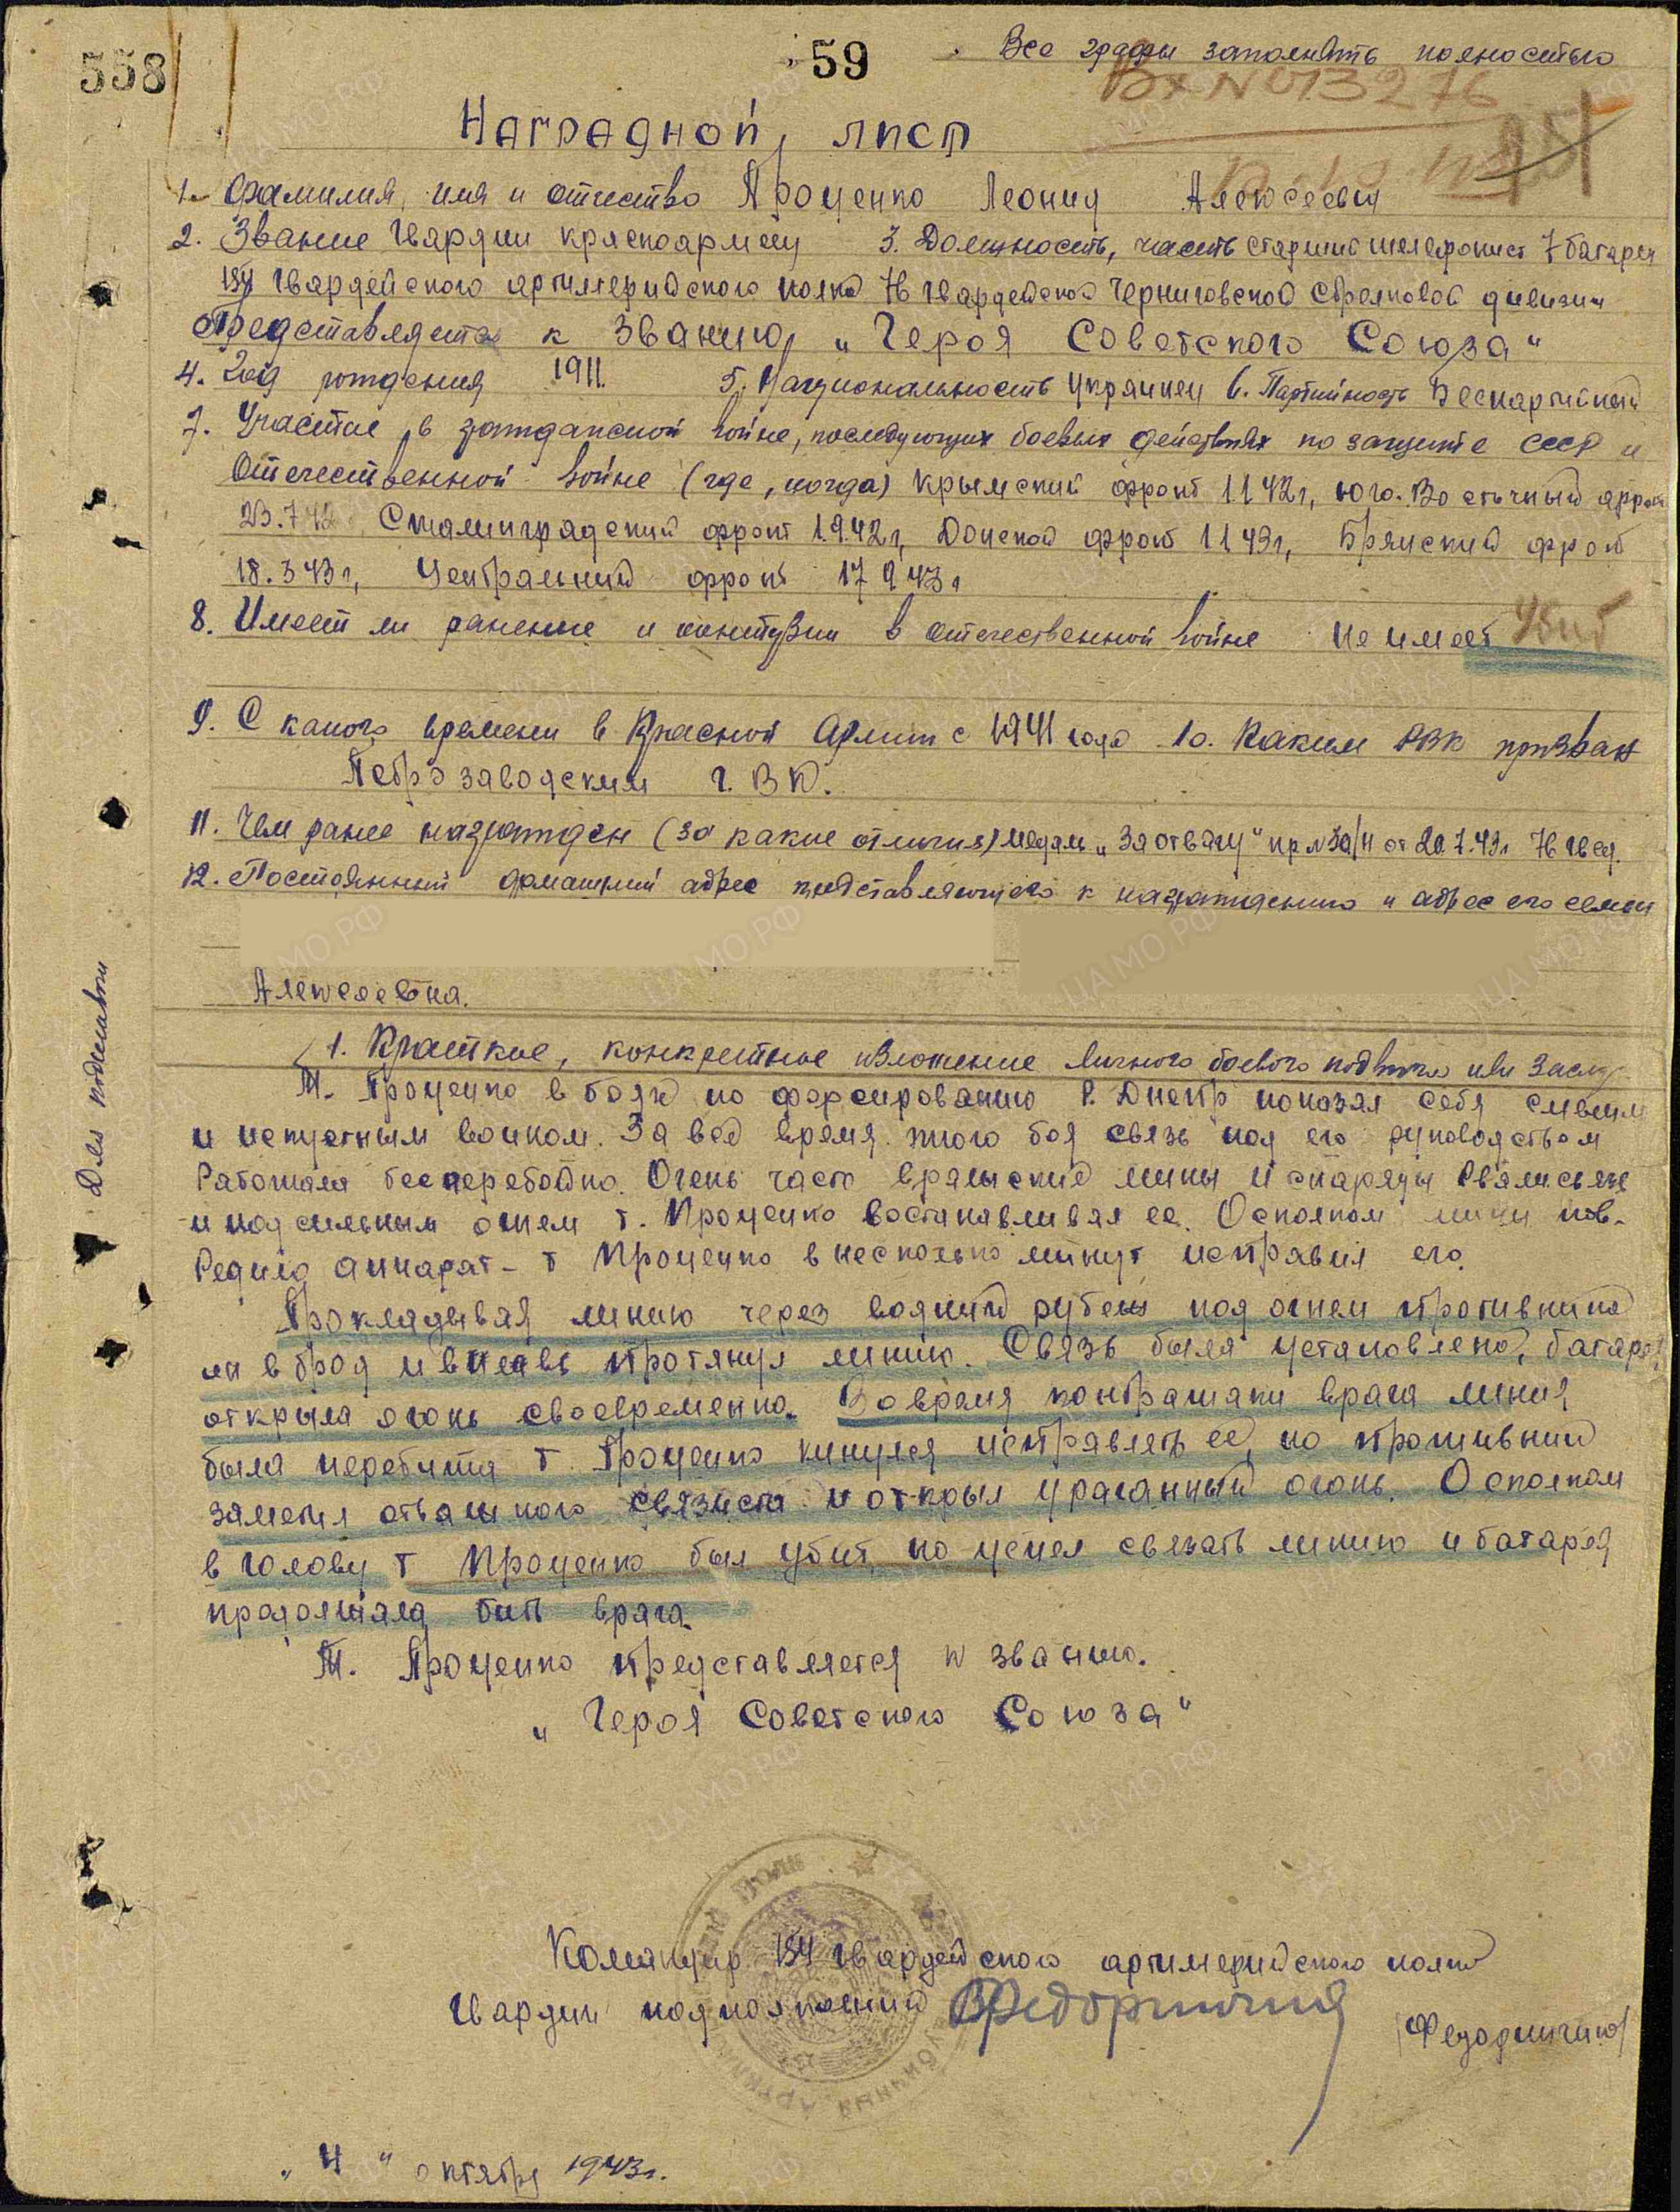 558
59
Все графы заполнять полностью
Вх N 013276
Наградной лист
1. Фамилия, имя и отчество Проценко Леонид Алексеевич
2. Звание Гвардии красноармеец 3. Должность, часть старший телефонист 7 батареи
154 гвардейского артиллерийского полка 76 гвардейской Черниговской стрелковой дивизии
Представляется к званию „Героя Советского Союза"
4. Год рождения 1911. 5. Национальность Украинец 6. Партийность Беспартийный
7. Участие в гражданской войне, последующих боевых действиях по защите СССР и
Отечественной войне (где, когда) Крымский фронт 1942г, Юго-Восточный фронт
23.7.42 Сталинградский фронт 1942г, Донской фронт 1943г, Брянский фронт
18.3 43г, Центральний фронт 17 9 43г
8. Имеет ли ранение и контузии в отечественной войне не имеет Убит
9. С какого времени в Красной Армии с 1941 года 10. Каким РВК призван
Петрозаводским Г.В.К.
11. Чем ранее награжден (за какие отличия) медаль „За отвагу" пр N30/н от 20.7.43г 76 гв сд.
12. Постоянный домашний адрес представляющего к награждению и адрес его семьи
Алексеевна.
Для подшивки
1. Краткое, конкретное изложение личного боевого подвига или заслуг
Т. Проценко в боях по форсированию р. Днепр показал себя смелым
и искустным воином. За всё время этого боя связь под его руководством
работала бесперебойно. Очень часто вражеские мины и снаряды рвали связь
и под сильным огнем т. Проценко востанавливал ее. Осколком мины пов-
редило аппарат - т Проценко в несколько минут исправил его.
Прокладывая линию через водный рубеж под огнем противника
он в брод и вплавь протянул линию. Связь была установлена, батарея
открыла огонь своевременно. Во время контратаки врага линия
была перебита т. Проценко кинулся исправлять ее, но противник
заметил отважного связиста и открыл ураганный огонь. Осколком
в голову т Проценко был убит, но успел связать линию и батарея
продолжала бить врага.
Т. Проценко представляется к званию.
„Героя Советского Союза"
Командир 154 гвардейского артиллерийского полка
Гвардии подполковник
„4" октября 1943г.